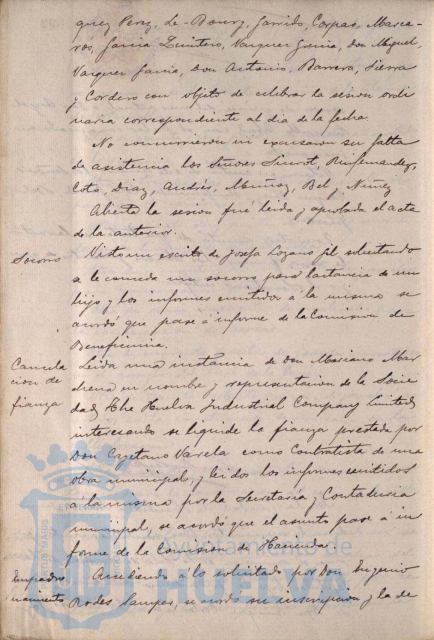 quez Perez, Le-Bourg, Garrido, Corpas, Masca-
rós, Garcia Quintero, Vazquez Garcia, Don Miguel,
Vazquez Garcia, Don Antonio, Barrera, Sierra
y Cordero con objeto de celebrar la sesion ordi
naria correspondiente al dia de la fecha.
No concurrieron ni excusaron su falta
de asistencia los Señores Ruifernandez,
Coto, Diaz, Andrés, Muñoz, Bel y Nuñez
Abierta la sesion fué leida y aprobada el acta
de la anterior.
Socorro
Visto un escrito de Josefa Lozano Gil solicitando
se le conceda un socorro para lactancia de un
hijo y los informes emitidos á la misma se
acordó que pase á informe de la Comision de
Beneficencia.
Cancela
cion de
fianza
Leida una instancia de Don Mariano Mar
chena en nombre y representacion de la Socie
dad The Huelva Industrial Company Limited
interesando se liquide la fianza prestada por
Don Cayetano Varela como Contratista de una
obra municipal, y leidos los informes emitidos
á la misma por la Secretaría y Contaduria
municipal, se acordó que el asunto pase á in
forme de la Comision de Hacienda.
Empadro
namiento
Accediendo á lo solicitado por Don Eugenio
Rodes Campos, se acordó su inscripcion y la de
Ayuntamiento de
HUELVA